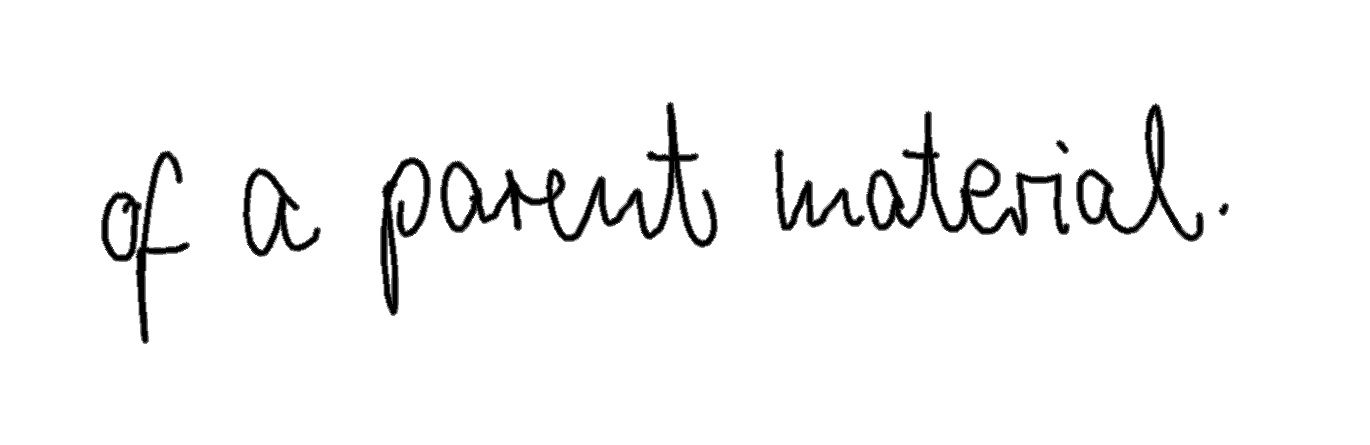 of a parent material.